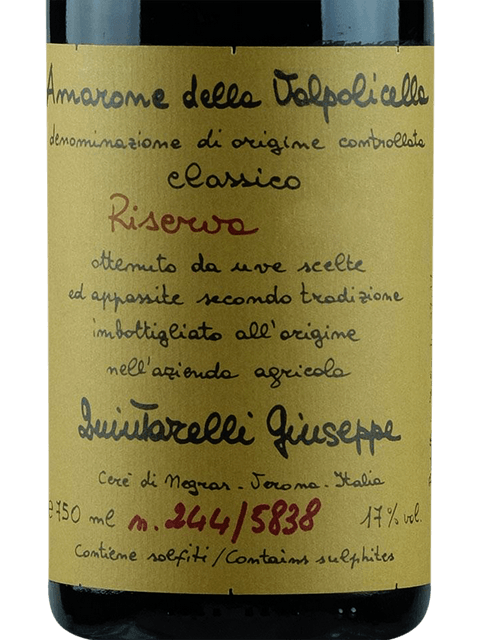 Amarone della Valpolicella
denominazione di origine controllata
classico
Riserva
ottenuto da uve scelte
ed appassite secondo tradizione
imbottigliato all'origine
nell'azienda agricola
Quintarelli Giuseppe
Cerè di Negrar - Verona - Italia
e 750 ml n. 244/5838 17% vol.
Contiene solfiti / Contains sulphites